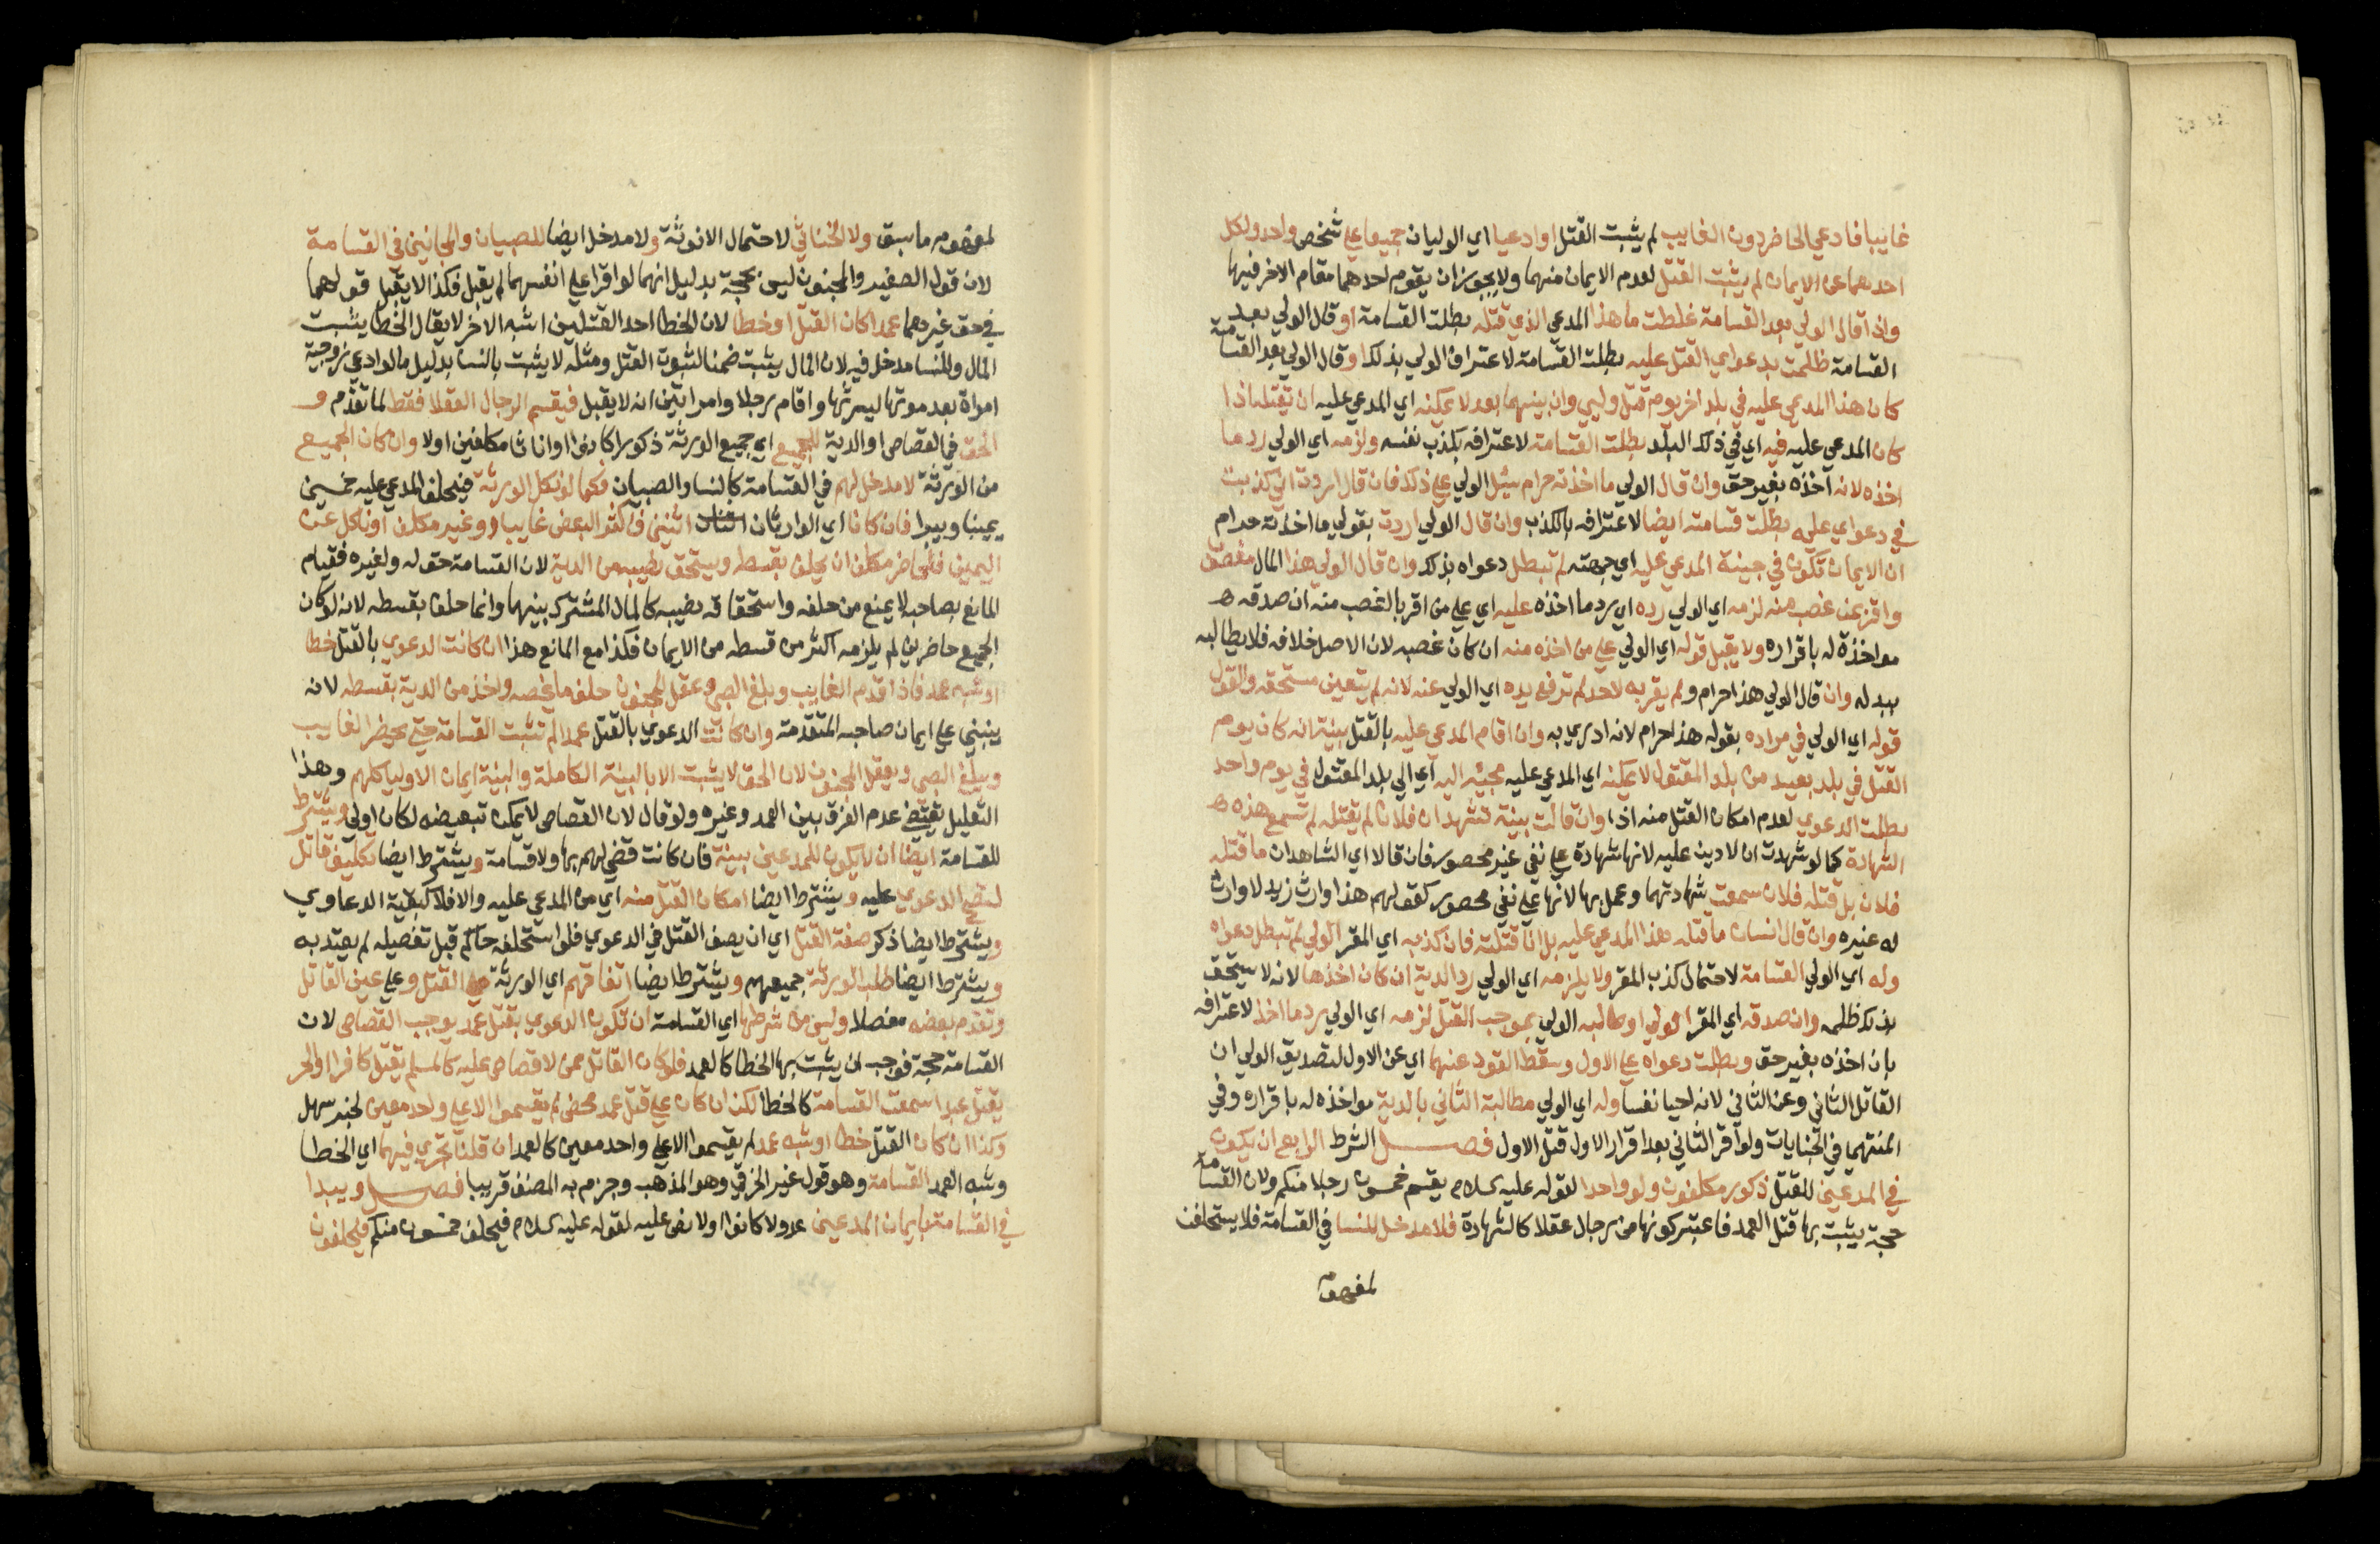 غايبا فادعي الحاضر دون الغايب لم يثبت القتل او ادعيا اي الوليان جميعا علي شخص واحد ونكل
احدهما عن الايمان لم يثبت القتل لعدم الايمان منهما ولا يجوز ان يقوم احدهما مقام الاخر فيها
واذا قال الولي بعد القسامة غلطت ما هذا المدعي الذي قتله بطلت القسامة او قال الولي بعد
القسامة ظلمت بدعواي القتل عليه بطلت القسامة لاعتراف الولي بذلك او قال الولي بعد القسامة
كان هذا المدعي عليه في بلد اخر يوم قتل وليي وان بينهما بعد لا يمكنه اي المدعي عليه ان يقتله اذا
كان المدعي عليه فيه اي في ذلك البلد بطلت القسامة لاعترافه بكذب نفسه ولزمه اي الولي رد ما
اخذه لانه اخذه بغير حق وان قال الولي ما اخذته حرام سئل الولي علي ذلك فان قال اردت اني كذبت
في دعواي عليه بطلت قسامته ايضا لاعترافه بالكذب وان قال الولي اردت بقولي ما اخذته حرام
ان الايمان تكون في جنبة المدعي عليه اي جهته لم تبطل دعواه بذلك وان قال الولي هذا المال مغصوب
واقر بمن غصب منه لزمه اي الولي رده اي رد ما اخذه عليه اي علي من اقر بالغصب منه ان صدقه ه
مواخذة له باقراره ولا يقبل قوله اي الولي علي من اخذه منه ان كان غصبه لان الاصل خلافه فلا يطالبه
ببدله وان قال الولي هذا حرام ولم يقر به لاحد لم ترفع يده اي الولي عنه لانه لم يتعين مستحقه والقول
قوله اي الولي في مراده بقوله هذا حرام لانه ادري به وان اقام المدعي عليه بالقتل بينة انه كان يوم
القتل في بلد بعيد من بلد المقتول لا يمكنه اي المدعي عليه مجيئه اليه اي الي بلد المقتول في يوم واحد
بطلت الدعوي لعدم امكان القتل منه اذا وان قالت بينة نشهد ان فلانا لم يقتله لم تسمع هذه ه
الشهادة كما لو شهدت ان لا دين عليه لانها شهادة علي نفي غير محصور فان قالا اي الشاهدان ما قتله
فلان بل قتله فلان سمعت شهادتهما وعمل بها لانها علي نفي محصور كقولهم هذا وارث زيد لا وارث
له غيره وان قال انسان ما قتله هذا المدعي عليه بل انا قتلته فان كذبه اي المقر الولي لم تبطل دعواه
وله اي الولي القسامة لاحتمال كذب المقر ولا يلزمه اي الولي رد الدية ان كان اخذها لانه لا يتحقق
بذلك ظلمه وان صدقه اي المقر الولي او طالبه الولي بموجب القتل لزمه اي الولي رد ما اخذ لاعترافه
بان اخذه بغير حق وبطلت دعواه علي الاول وسقط القود عنهما اي عن الاول لتصديق الولي ان
القاتل الثاني وعن الثاني لانه احيا نفسا وله اي الولي مطالبة الثاني بالدية مواخذه له باقراره وفي
المنتهي في الجنايات ولو اقر الثاني بعد اقرار الاول قتل الاول فصل الشرط الرابع ان يكون
في المدعين للقتل ذكور مكلفون ولو واحدا لقوله عليه السلام يقسم خمسون رجلا منكم ولان القسامة
حجة يثبت بها قتل العمد فاعتبر كونها من رجال عقلا كالشهادة فلا مدخل للنسا في القسامة فلا يستحلفن
لمفهوم
لمفهوم ما سبق ولا الخناثي لاحتمال الانوثة ولا مدخل ايضا للصبيان والمجانين في القسامة
لان قول الصغير والمجنون ليس بحجة بدليل انهما لو اقرا علي انفسهما لم يقبل فكذا لا يقبل قولهما
في حق غيرهما عمدا كان القتل او خطا لان الخطا احد القتلين اشبه الاخر لا يقال الخطا يثبت
المال وللنسا مدخل فيه لان المال يثبت ضمنا لثبوت القتل ومثله لا يثبت بالنسا بدليل ما لو ادعي زوجية
امراة بعد موتها ليرثها واقام رجلا وامراتين انه لا يقبل فيقسم الرجال العقلا فقط لما تقدم و
الحق في القصاص او الدية للجميع اي جميع الورثة ذكورا كانوا او اناثا مكلفين اولا وان كان الجميع
من الورثة لا مدخل لهم في القسامة كالنسا والصبيان فكما لو نكل الورثة فيحلف المدعي عليه خمسين
يمينا ويبرا فان كانا اي الوارثان اثنين فاكثر البعض غايبا او غير مكلف او ناكل عن
اليمين فلحاضر مكلف ان يحلف بقسطه ويستحق نصيبه من الدية لان القسامة حق له ولغيره فقيام
المانع بصاحبه لا يمنع من حلفه واستحقاقه نصيبه كالمال المشترك بينهما وانما حلف بقسطه لانه لو كان
الجميع حاضرين لم يلزمه اكثر من قسطه من الايمان فكذا مع المانع هذا ان كانت الدعوي بالقتل خطا
او شبه عمد فاذا قدم الغايب وبلغ الصبي وعقل المجنون حلف ما يخصه واخذ من الدية بقسطه لانه
ينبني علي ايمان صاحبه المتقدمة وان كانت الدعوي بالقتل عمدا لم تثبت القسامة حتي يحضر الغايب
ويبلغ الصبي ويعقل المجنون لان الحق لا يثبت الا بالبينة الكاملة والبينة ايمان الاوليا كلهم وهذا
التعليل يقتضي عدم الفرق بين العمد وغيره ولو قال لان القصاص لا يمكن تبعيضه لكان اولي ويشترط
للقسامة ايضا ان لا يكون للمدعين بينة فان كانت قضي لهم بها ولا قسامة ويشترط ايضا تكليف قاتل
لتصح الدعوي عليه ويشترط ايضا امكان القتل منه اي من المدعي عليه والا فلا كبقية الدعاوي
ويشترط ايضا ذكر صفة القتل اي ان يصف القتل في الدعوي فلو استحلفه حاكم قبل تفصيله لم يعتد به
ويشترط ايضا طلب الورثة جميعهم ويشترط ايضا اتفاقهم اي الورثة علي القتل وعلي عين القاتل
وتقدم بعضه مفصلا وليس من شرطها اي القسامة ان تكون الدعوي بقتل عمد يوجب القصاص لان
القسامة حجة فوجب ان يثبت بها الخطا كالعمد فلو كان القاتل ممن لا قصاص عليه كالمسلم يقتل كافرا والحر
يقتل عبدا سمعت القسامة كالخطا لكن ان كان علي قتل عمد محض لم يقسموا الا علي واحد معين لخبر سهل
وكذا ان كان القتل خطا او شبه عمد لم يقسموا الا علي واحد معين كالعمد ان قلنا تجري فيهما اي الخطا
وشبه العمد القسامة وهو قول غير الخرقي وهو المذهب وجزم به المصنف قريبا فصل ويبدا
في القسامة بايمان المدعين عدولا كانوا اولا نص عليه لقوله عليه السلام فيحلف خمسون منكم فيحلفون